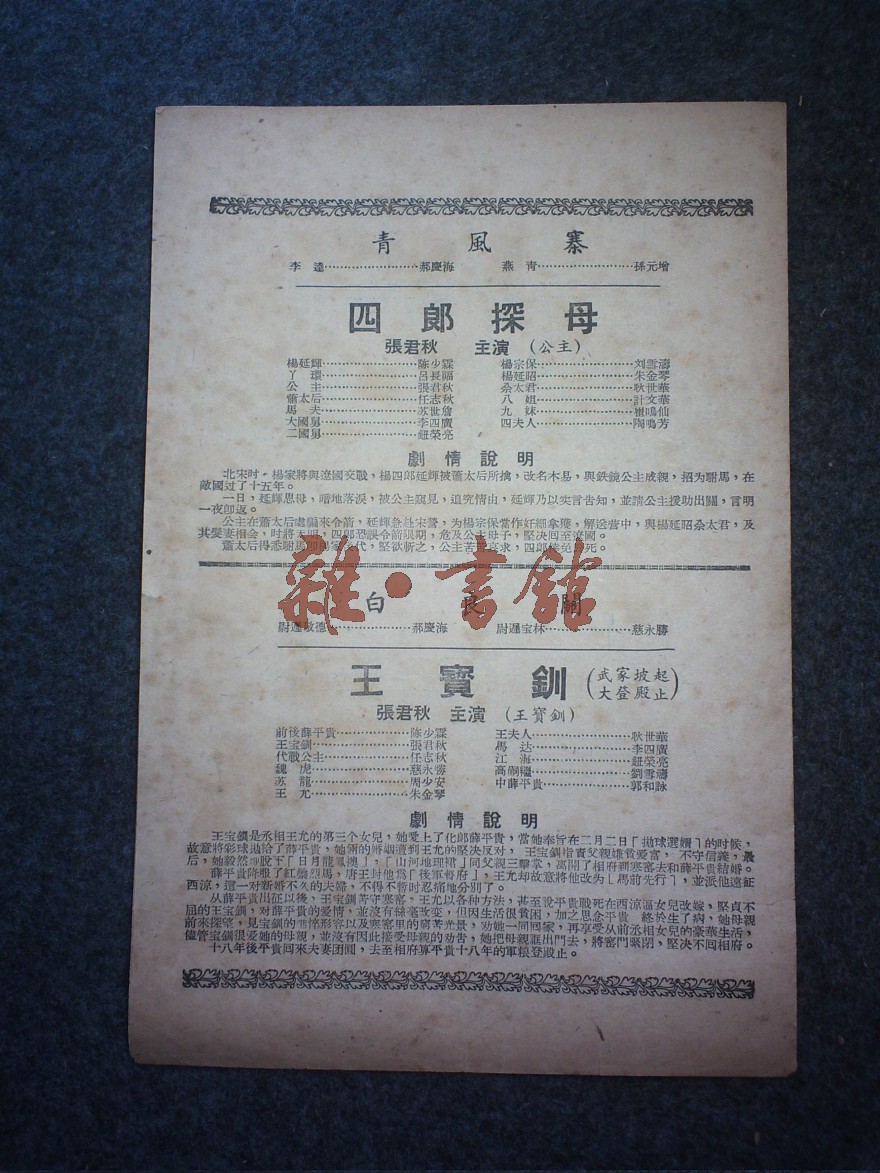 青風寨
李逵……………………郝慶海 燕青……………………孫元增
四郎探母
張君秋 主演(公主)
楊延輝……………………陳少霖 楊宗保……………………刘雪濤
丫環……………………呂長福 楊延昭……………………朱金琴
公主……………………張君秋 佘太君……………………耿世華
蕭太后……………………任志秋 八姐……………………計文華
馬夫……………………苏世詹 九妹……………………崔鳴仙
大國舅……………………李四廣 四夫人……………………陶鳴芳
二國舅……………………鈕榮亮
劇情說明
北宋时,楊家將與遼國交戰,楊四郎延輝被蕭太后所擒,改名木易,與鉄鏡公主成親,招为駙馬,在
敵國过了十五年。
一日,延輝思母,暗地落淚,被公主窺見,追究情由,延輝乃以实言告知,並請公主援助出關,言明
一夜卽返。
公主在蕭太后處騙來令箭,延輝急赴宋營,为楊宗保當作奸細拿獲,解送营中,與楊延昭佘太君,及
其髮妻相会,时將天明,四郎恐誤令箭限期,危及公主母子,堅决囘至遼國。
蕭太后得悉駙馬卽楊家后代,堅欲斬之,公主苦苦哀求,四郎得免死。
雜·書舘
白良關
尉遲敬德……………………郝慶海 尉遲宝林……………………慈永勝
王寶釧(武家坡起大登殿止)
張君秋 主演(王寶釧)
前後薛平貴……………………陳少霖 王夫人……………………耿世華
王宝釧……………………張君秋 馬达……………………李四廣
代戰公主……………………任志秋 江海……………………鈕榮亮
魏虎……………………慈永勝 高嗣繼……………………劉雪濤
苏龍……………………周少安 中薛平貴……………………郭和詠
王允……………………朱金琴
劇情說明
王宝釧是丞相王允的第三个女兒,她愛上了化郎薛平貴,當她奉旨在二月二日「拋球選婿」的时候,
故意將彩球拋给了薛平貴,她倆的婚姻遭到王允的堅决反对,王宝釧指責父親嫌貧爱富,不守信義,最
后,她毅然地脫下「日月龍鳳襖」,「山河地理裙」同父親三擊掌,离開了相府到寒窰去和薛平貴結婚。
薛平貴降服了紅鬃烈馬,唐王封他爲「後軍督府」,王允却故意將他改为「馬前先行」,並派他遠征
西涼,這一对新婚不久的夫婦,不得不暫时忍痛地分别了。
从薛平貴出征以後,王宝釧苦守寒窰,王允以各种方法,甚至說平貴戰死在西涼逼女兒改嫁,堅貞不
屈的王宝釧,对薛平貴的爱情,並沒有絲毫改变,但因生活很貧困,加之思念平貴 終於生了病,她母親
前來探望,見宝釧的憔悴形容以及寒窰里的窮苦光景,劝她一同囘家,再享受从前丞相女兒的豪華生活,
儘管宝釧很爱她的母親,並沒有因此接受母親的劝告,她把母親誆出門去,將窰門緊閉,堅决不囘相府。
十八年後平貴囘來夫妻团圓,去至相府算平貴十八年的軍粮登殿止。